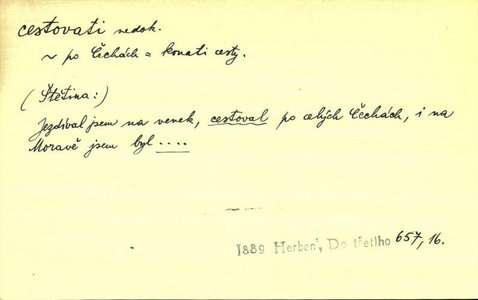 cestovati nedok.
~ po Čechách = konati cesty.
(Štětina:)
Jezdíval jsem na venek, cestoval po celých Čechách, i na
Moravě jsem byl ....
1889 Herben, Do třetího 657, 16.